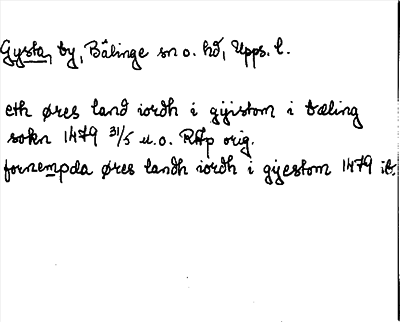 Gysta, by, Bälinge sn o. hd, Upps. l.
eth øres land iordh i gyistom i bæling
sokn 1479 31/5 u.o. RAp orig.
fornempda øres landh iordh i gyestom 1479 ib.